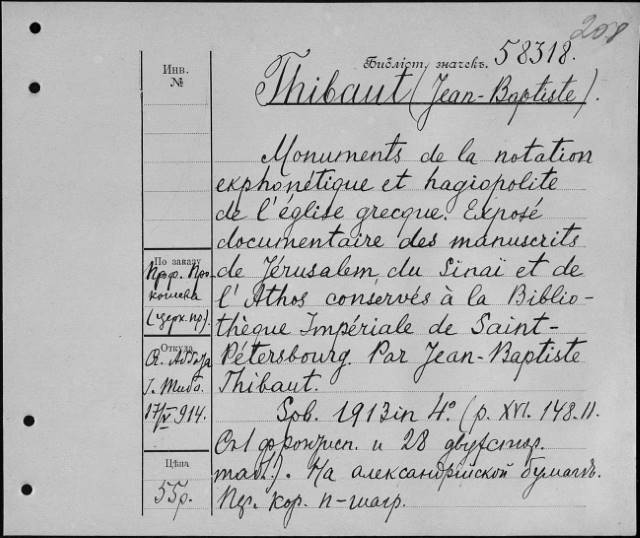 208
Библіот. значекъ. 58318.
Thibaut (Jean-Baptiste).
Инв.
№
Monuments de la notation
ekphonétique et hagiopolite
de l'église grecque. Exposé
documentaire des manuscrits
de Jérusalem du Sinaï et de
l'Athos conservés à la Biblio-
thèque Impériale de Saint-
Pétersbourg. Par Jean-Baptiste
Thibaut.
Spb. 1913 in 4° (p. XVI. 148. II.
Съ 1 фронтисп. и 28 двухстор.
табл.). На александрійской бумагѣ.
кор. п-шагр.
По заказу
Проф. Про-
кошева
(церк. пр.).
Откуда
17/V 914.
Цѣна
55р.